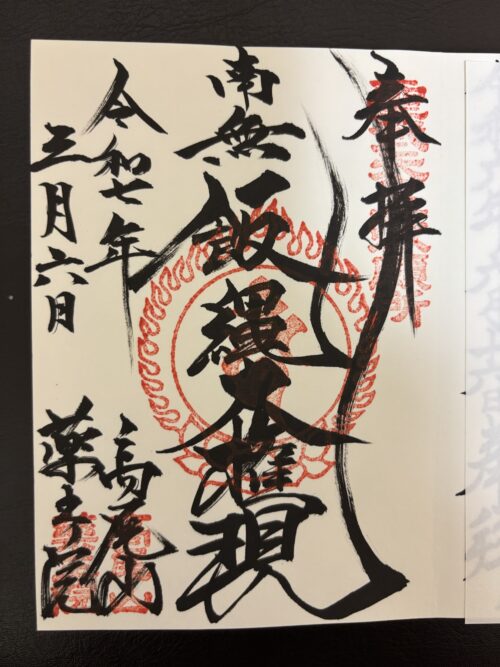 奉拝
南無飯縄大権現
令和七年
三月六日
高尾山
薬王院